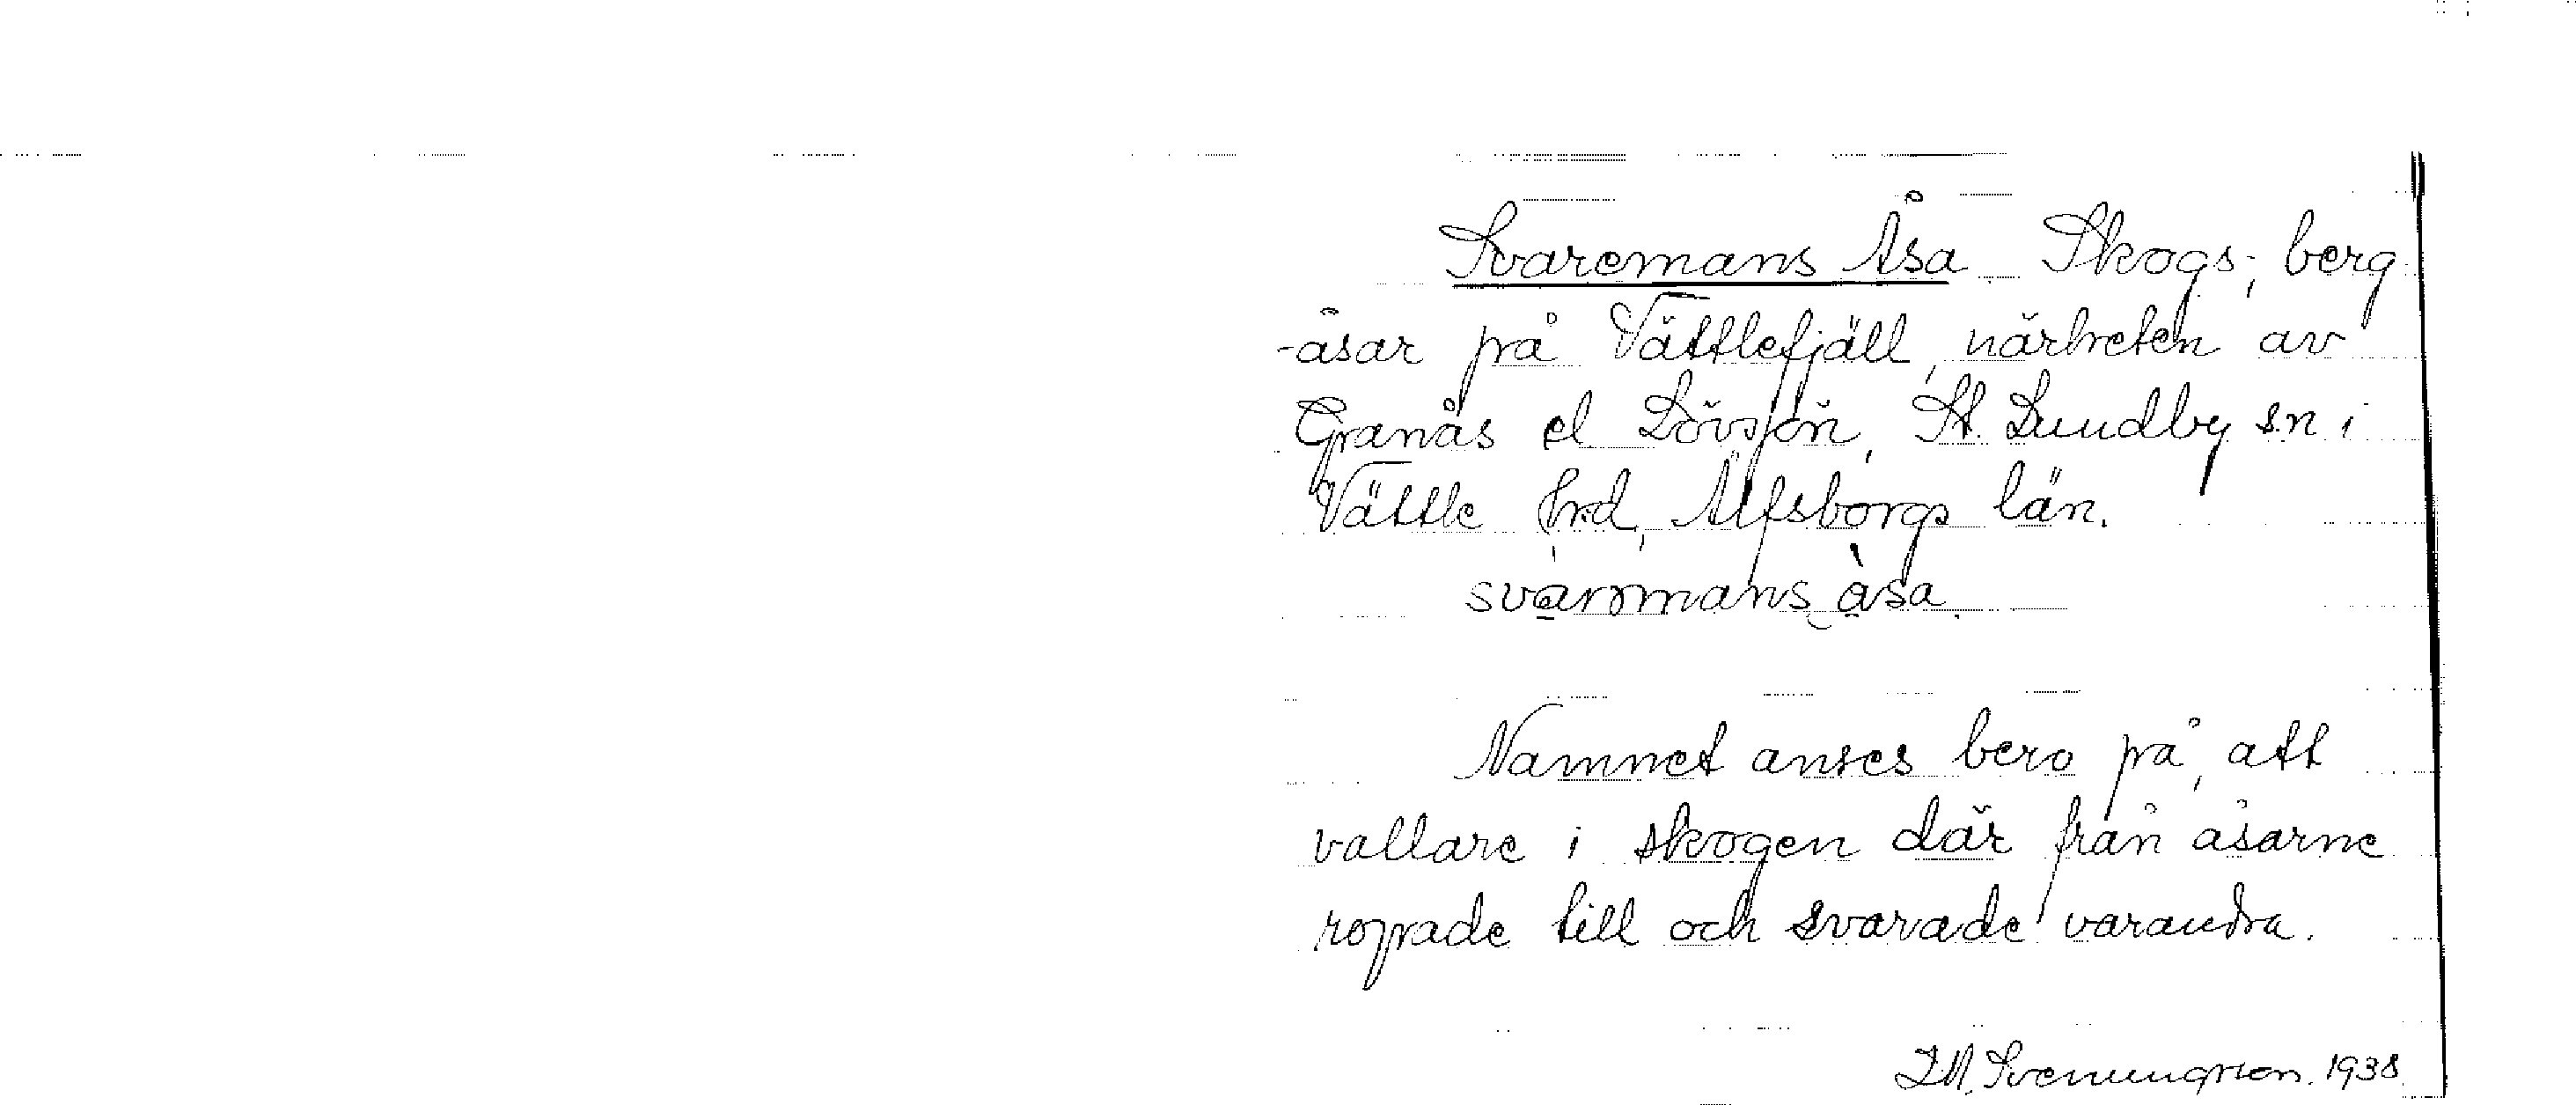 Svaremans Åsa Skogs-, berg
-åsar på Vättlefjäll, närheten av
Granås el Lövsjön, St. Lundby s.n i
Vättle hrd, Älfsborgs län.
svarmans åsa
Namnet anses bero på, att
vallare i skogen där från åsarne
ropade till och svarade varandra.
Svenungsson. 1938